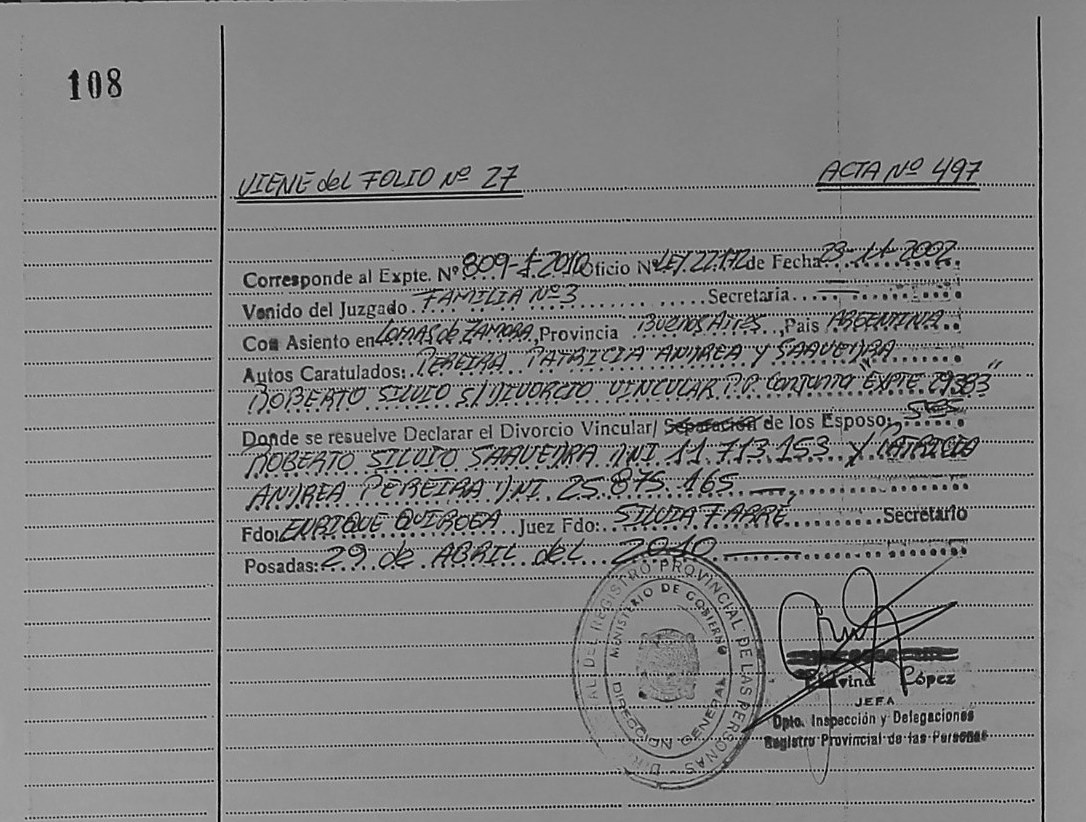 108
VIENE del FOLIO Nº 27 ACTA Nº 497
Corresponde al Expte. Nº 809-J-2010 Oficio Nº LEY.22172 de Fecha: 23-11-2007
Venido del Juzgado FAMILIA Nº 3 Secretaria
Con Asiento en LOMAS de ZAMORA, Provincia BUENOS AIRES, Pais ARGENTINA
Autos Caratulados: PEREIRA PATRICIA ANDREA Y SAAVEDRA
ROBERTO SILVIO S/DIVORCIO VINCULAR P.P. Conjunta "EXPTE 29383"
Donde se resuelve Declarar el Divorcio Vincular/ Separación de los Esposo:
ROBERTO SILVIO SAAVEDRA DNI 11.713.153 Y PATRICIA
ANDREA PEREIRA DNI. 25.875.165
Fdo: ENRIQUE QUIROGA Juez Fdo: SILVIA FABRE Secretario
Posadas: 29 de ABRIL del 2010
REGISTRO PROVINCIAL DE LAS PERSONAS
MINISTERIO DE GOBIERNO
DIRECCION GENERAL
López
JEFA
Dpto. Inspección y Delegaciones
Registro Provincial de las Personas